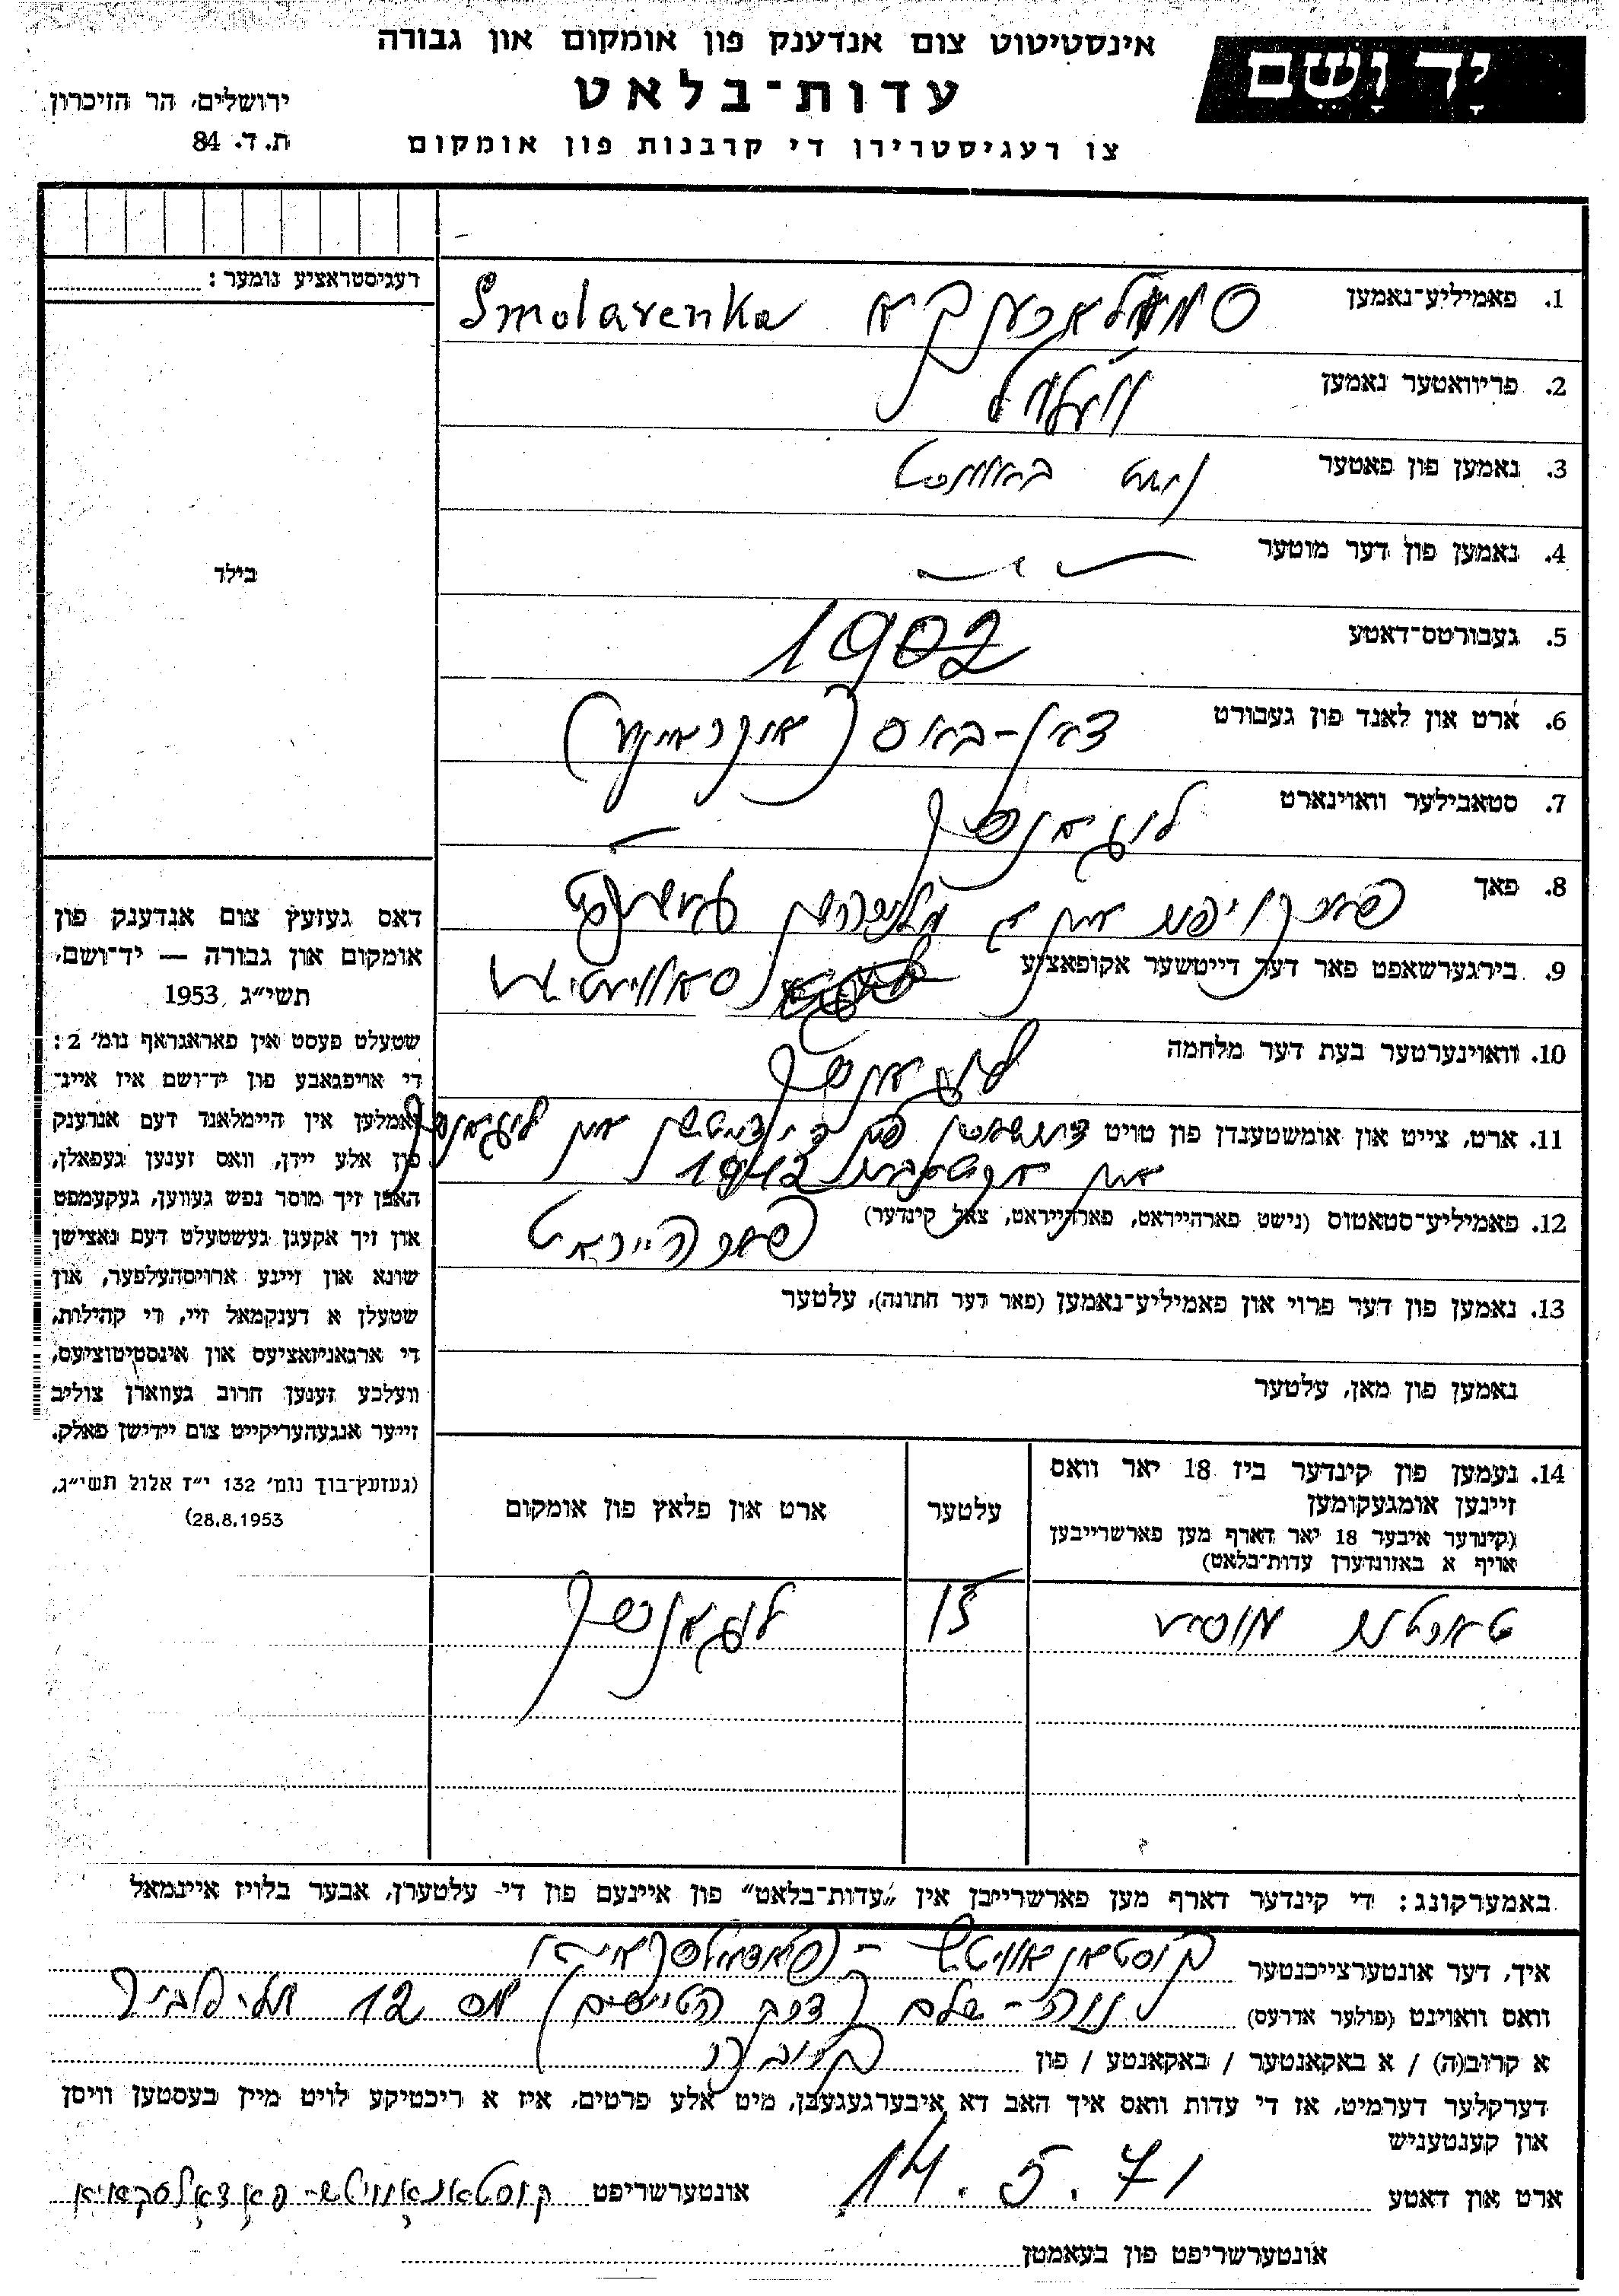 יד ושם
אינסטיטוט צום אנדענק פון אומקום און גבורה
עדות־בלאט
צו רעגיסטרירן די קרבנות פון אומקום
ירושלים, הר הזיכרון
ת. ד. 84
רעגיסטראציע נומער:
בילד
1. פאמיליע־נאמען Smolarenka
2. פריוואטער נאמען
3. נאמען פון פאטער נישט באוווסט
4. נאמען פון דער מוטער
5. געבורטס־דאטע 1902
6. ארט און לאנד פון געבורט דאן-באס (אוקראינע)
7. סטאבילער וואוינארט לוגאנסק
8. פאך
9. בירגערשאפט פאר דער דייטשער אקופאציע סאוויעטיש
10. וואוינערטער בעת דער מלחמה לוגאנסק
11. ארט, צייט און אומשטענדן פון טויט דערשאסן פון די דייטשן אין לוגאנסק
אין אקטאבער 1942
12. פאמיליע־סטאטוס (נישט פארהייראט, פארהייראט, צאל קינדער) פארהייראט
13. נאמען פון דער פרוי און פאמיליע־נאמען (פאר דער חתונה), עלטער
נאמען פון מאן, עלטער
14. נעמען פון קינדער ביז 18 יאר וואס
זיינען אומגעקומען
(קינדער איבער 18 יאר דארף מען פארשרייבן
אויף א באזונדערן עדות־בלאט)
עלטער
ארט און פלאץ פון אומקום
טאכטער מוסיע
לוגאנסק
דאס געזעץ צום אנדענק פון
אומקום און גבורה — יד־ושם,
תשי״ג 1953,
שטעלט פעסט אין פאראגראף נומ׳ 2:
די אויפגאבע פון יד־ושם איז איינ־
זאמלען אין היימלאנד דעם אנדענק
פון אלע יידן, וואס זענען געפאלן,
האבן זיך מוסר נפש געווען, געקעמפט
און זיך אקעגן געשטעלט דעם נאצישן
שונא און זיינע ארויסהעלפער, און
שטעלן א דענקמאל זיי, די קהילות,
די ארגאניזאציעס און אינסטיטוציעס,
וועלכע זענען חרוב געווארן צוליב
זייער אנגעהעריקייט צום יידישן פאלק.
(געזעץ־בוך נומ׳ 132 י״ז אלול תשי״ג,
28.8.1953)
באמערקונג: די קינדער דארף מען פארשרייבן אין „עדות־בלאט״ פון איינעם פון די עלטערן, אבער בלויז איינמאל
איך, דער אונטערצייכנטער קוסטאנאוויטש - (פאדאלסקאיא)
וואס וואוינט (פולער אדרעס) נוה-שלם (דרך הטייסים) 12 תל-אביב
א קרוב(ה) / א באקאנטער / באקאנטע / פון קרובה
דערקלער דערמיט, אז די עדות וואס איך האב דא איבערגעגעבן, מיט אלע פרטים, איז א ריכטיקע לויט מיין בעסטען וויסן
און קענטעניש
ארט און דאטע 14.5.71 אונטערשריפט קוסטאנאוויטש-פאדאלסקאיא
אונטערשריפט פון בעאמטן